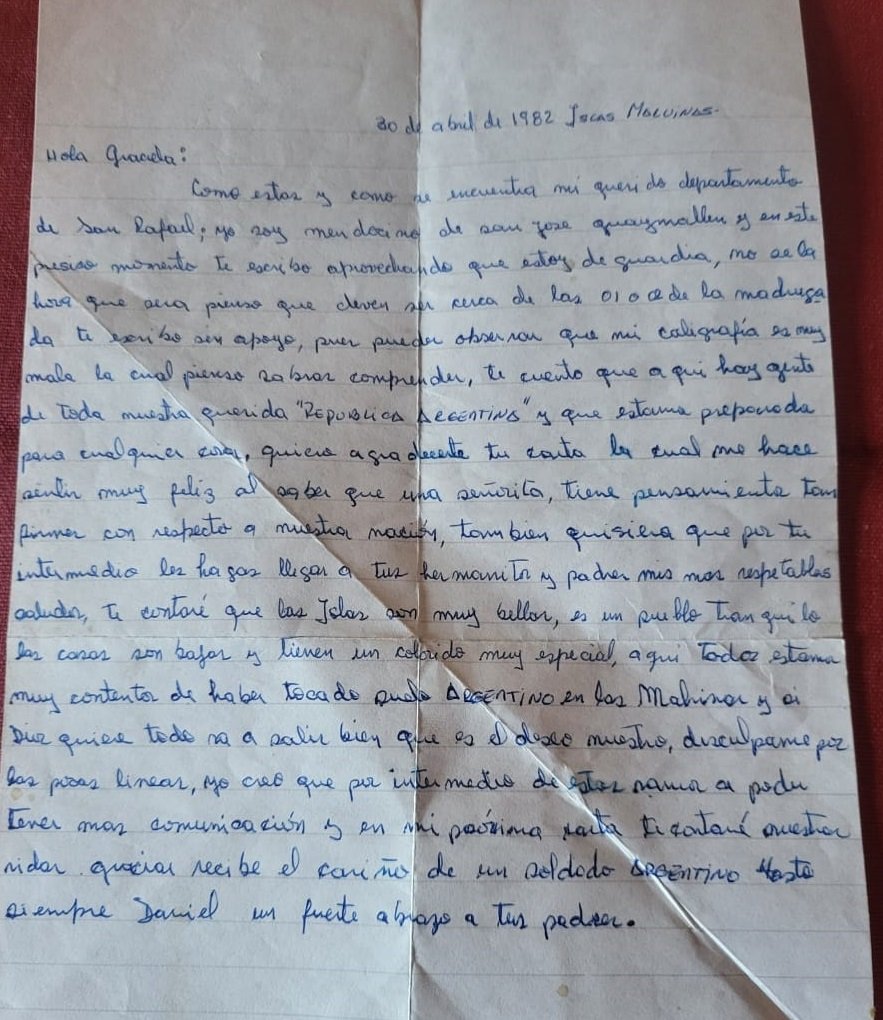 30 de abril de 1982 Islas Malvinas-
Hola Graciela:
Como estas y como se encuentra mi querido departamento
de San Rafael; yo soy mendocino de san jose guaymallen y en este
presiso momento te escribo aprovechando que estoy de guardia, no se la
hora que sera pienso que deven ser cerca de las 01 o 02 de la madruga
da te escribo sin apoyo, pues puedes observar que mi caligrafía es muy
mala la cual pienso sabras comprender, te cuento que aqui hay gente
de toda nuestra querida "REPUBLICA ARGENTINA" y que estamos preparados
para cualquier cosa, quiero agradecerte tu carta la cual me hace
sentir muy feliz al saber que una señorita, tiene pensamientos tan
firmes con respecto a nuestra nación, tambien quisiera que por tu
intermedio les hagas llegar a tus hermanitos y padres mis mas respetables
saludos, te contaré que las Islas son muy bellas, es un pueblo tranquilo
las casas son bajas y tienen un colorido muy especial, aqui todos estamos
muy contentos de haber tocado suelo ARGENTINO en las Malvinas y si
Dios quiere todo va a salir bien que es el deseo nuestro, disculpame por
las pocas lineas, yo creo que por intermedio de estas vamos a poder
tener mas comunicación y en mi próxima carta te contaré nuestras
vidas. gracias recibe el cariño de un soldado ARGENTINO Hasta
siempre Daniel un fuerte abrazo a tus padres.